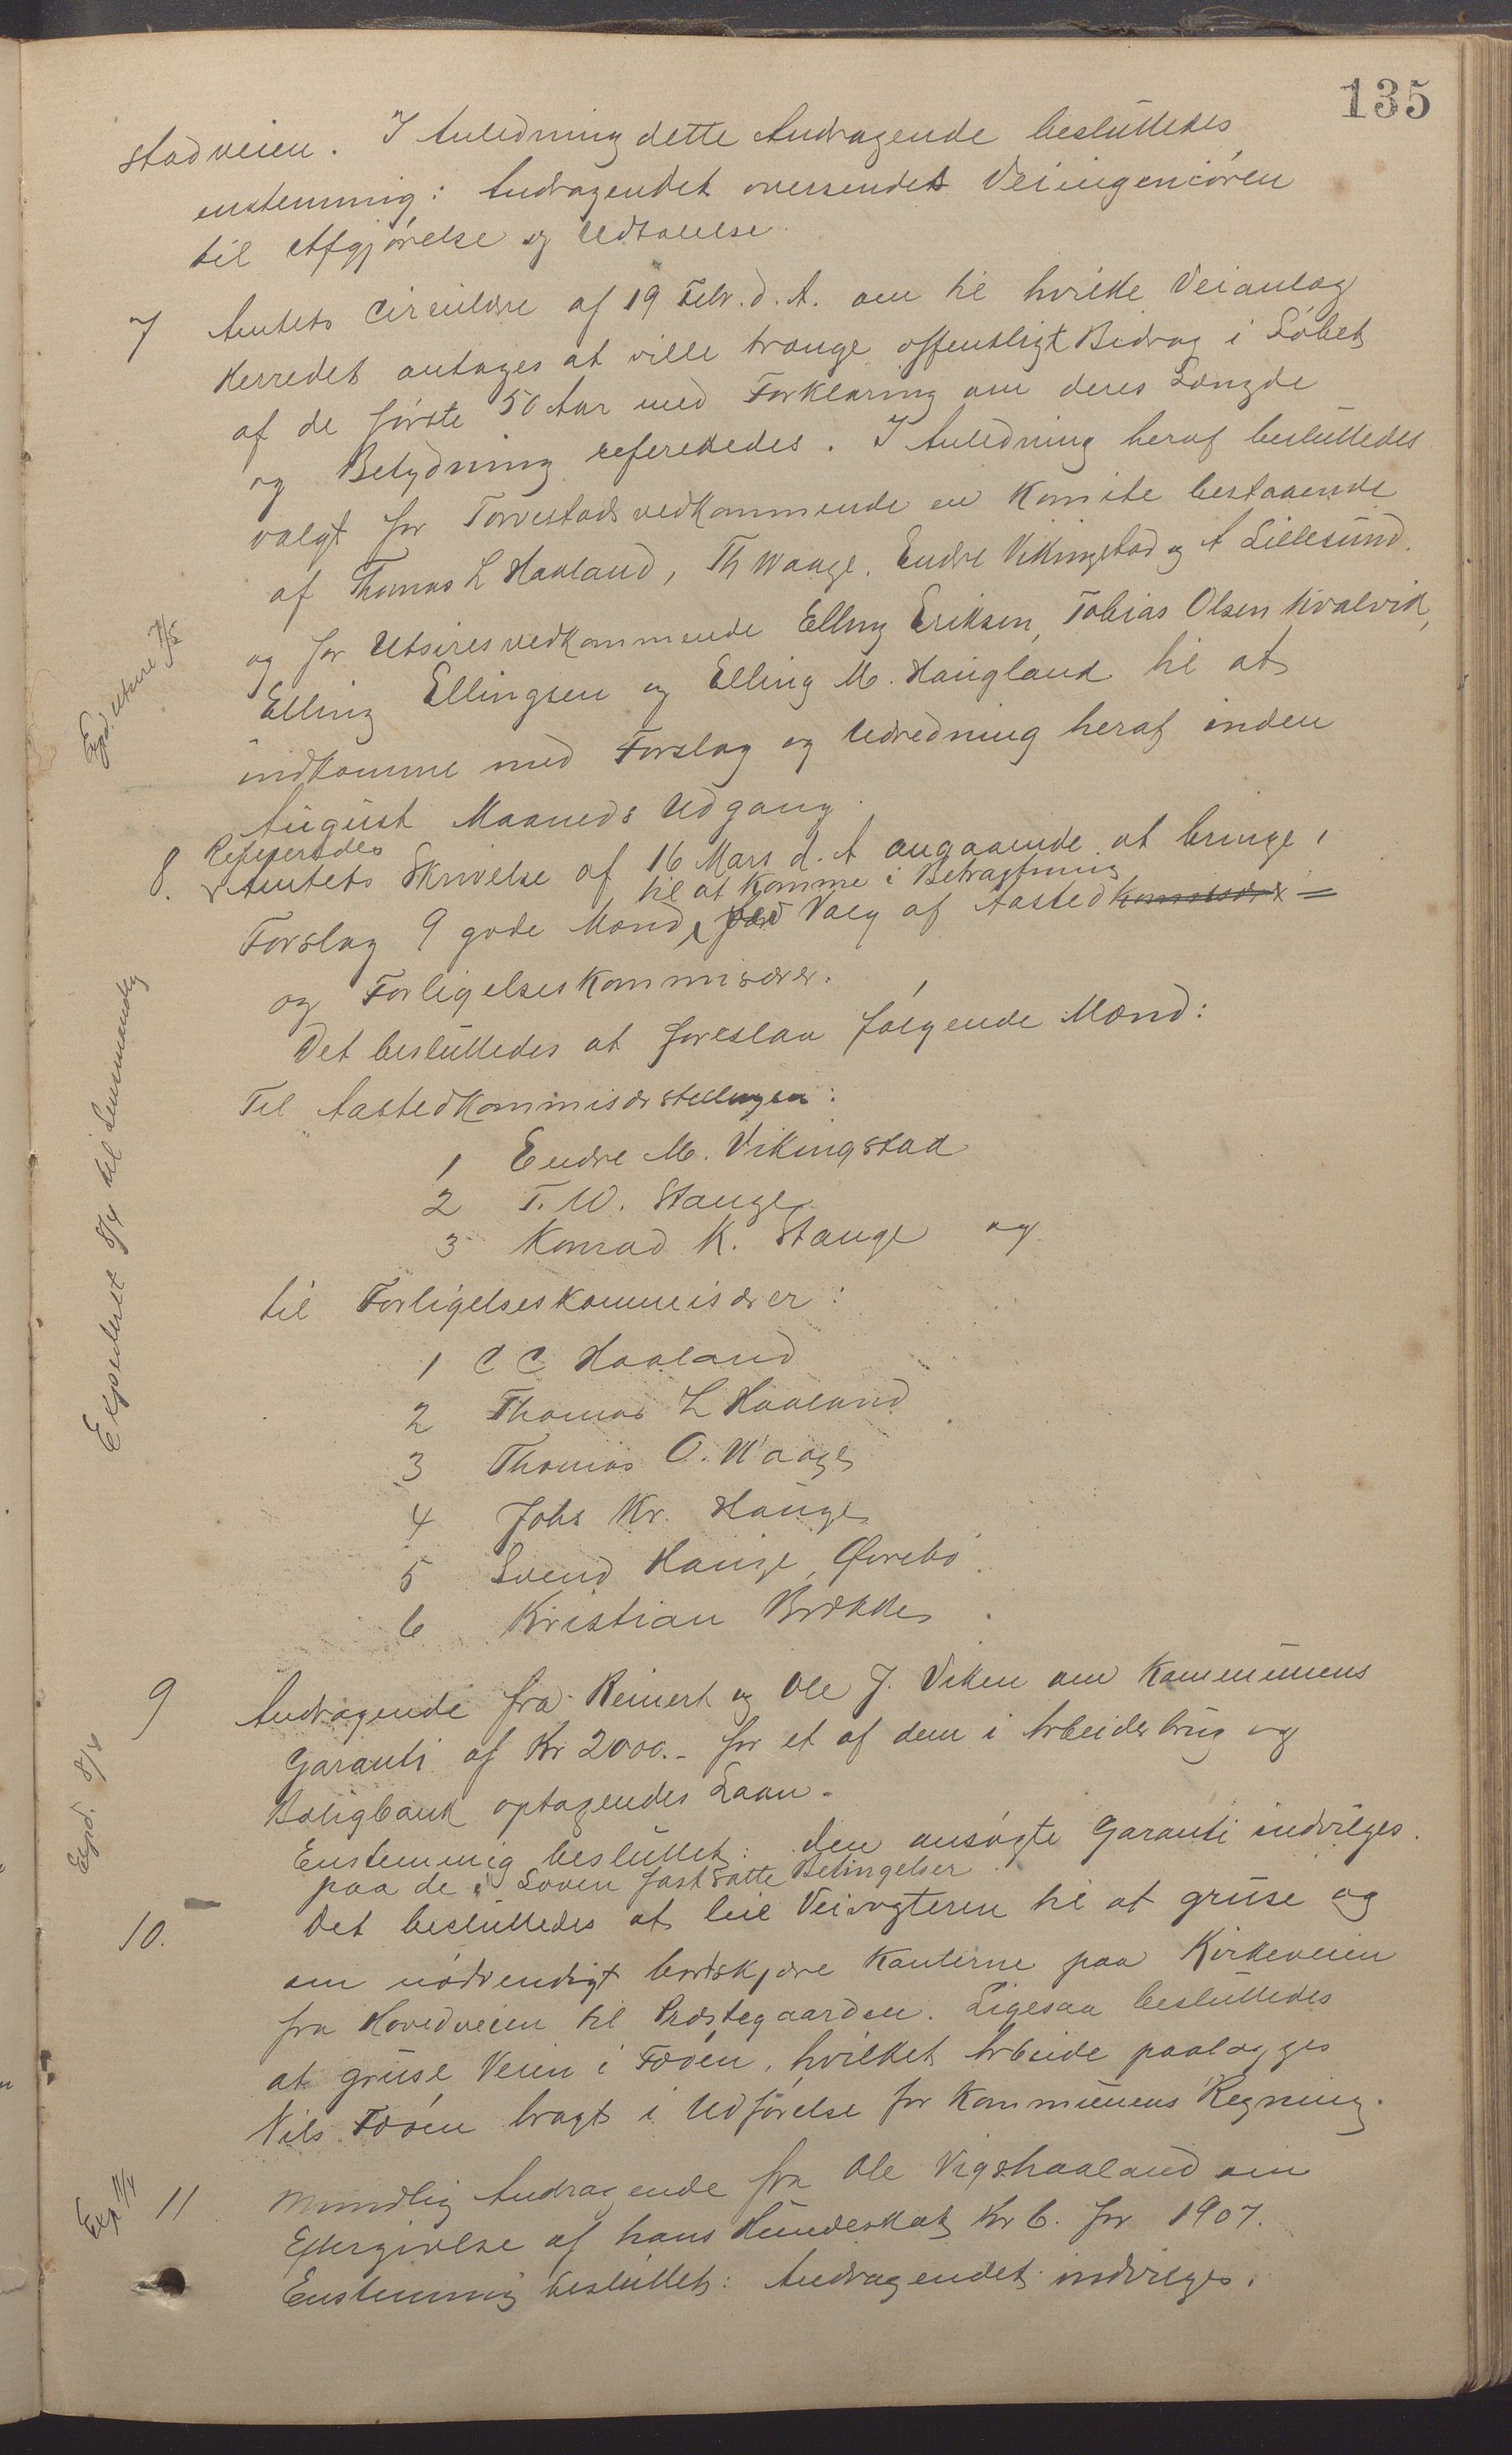 135
stadveien. I Anledning dette Andragende besluttedes
enstemmig: Andragendet oversendes Veiingeniøren
til Afgjørelse og Udtalelse.
7 Amtets Circulære af 19 Febr. d. A. om til hvilke Veianlæg
Herredet antages at ville trænge offentligt Bidrag i Løbet
af de første 50 Aar med Forklaring om deres Længde
og Betydning refereredes. I Anledning heraf besluttedes
valgt for Torvestads vedkommende en Komite bestaaende
af Thomas L Haaland, Th Waage, Endre Vikingstad og A Lillesund.
og for Utsires vedkommende Elling Eriksen, Tobias Olsen Kvalvik,
Expd. Utsire 7/5
Elling Ellingsen og Elling M. Haugland til at
indkomme med Forslag og Udredning heraf inden
August Maaneds Udgang.
Refereredes
8. Amtets Skrivelse af 16 Mars d. A angaaende at bringe i
til at komme i Betragtning
Forslag 9 gode Mænd, ved Valg af Aasted Kommisær =
og Forligelseskommisærer.
Det besluttedes at foreslaa følgende Mænd:
Til Aastedkommisærstillingen:
1 Endre M. Vikingstad
2 T. W. Stange
3 Konrad K. Stange og
Expederet 8/4 til Lensmanden
til Forligelseskommisærer:
1 C C Haaland
2 Thomas L Haaland
3 Thomas O. Waage
4 Johs Kr. Hauge
5 Svend Hauge, Øvrebø.
6 Kristian Brække.
9 Andragende fra Reinert og Ole J. Viken om Kommunens
Garanti af Kr 2000.- for et af dem i Arbeiderbrug og
Expd. 8/4
Boligbank optagendes Laan.
Enstemmig besluttet: den ansøgte Garanti indvilges.
paa de i Loven fastsatte Betingelser
10. Det besluttedes at leie Veivogteren til at gruse og
om nødvendigt bortskjære Kanterne paa Kirkeveien
fra Hovedveien til Præstegaarden. Ligesaa besluttedes
at gruse Veien i Føøen, hvilket Arbeide paalægges
Nils Føøen bragt i Udførelse for Kommunens Regning.
Exp 11/4
11 Mundtlig Andragende fra Ole Vigshaaland om
Eftergivelse af hans Hundeskat Kr 6. for 1907.
Enstemmig besluttet: Andragendet indvilges.